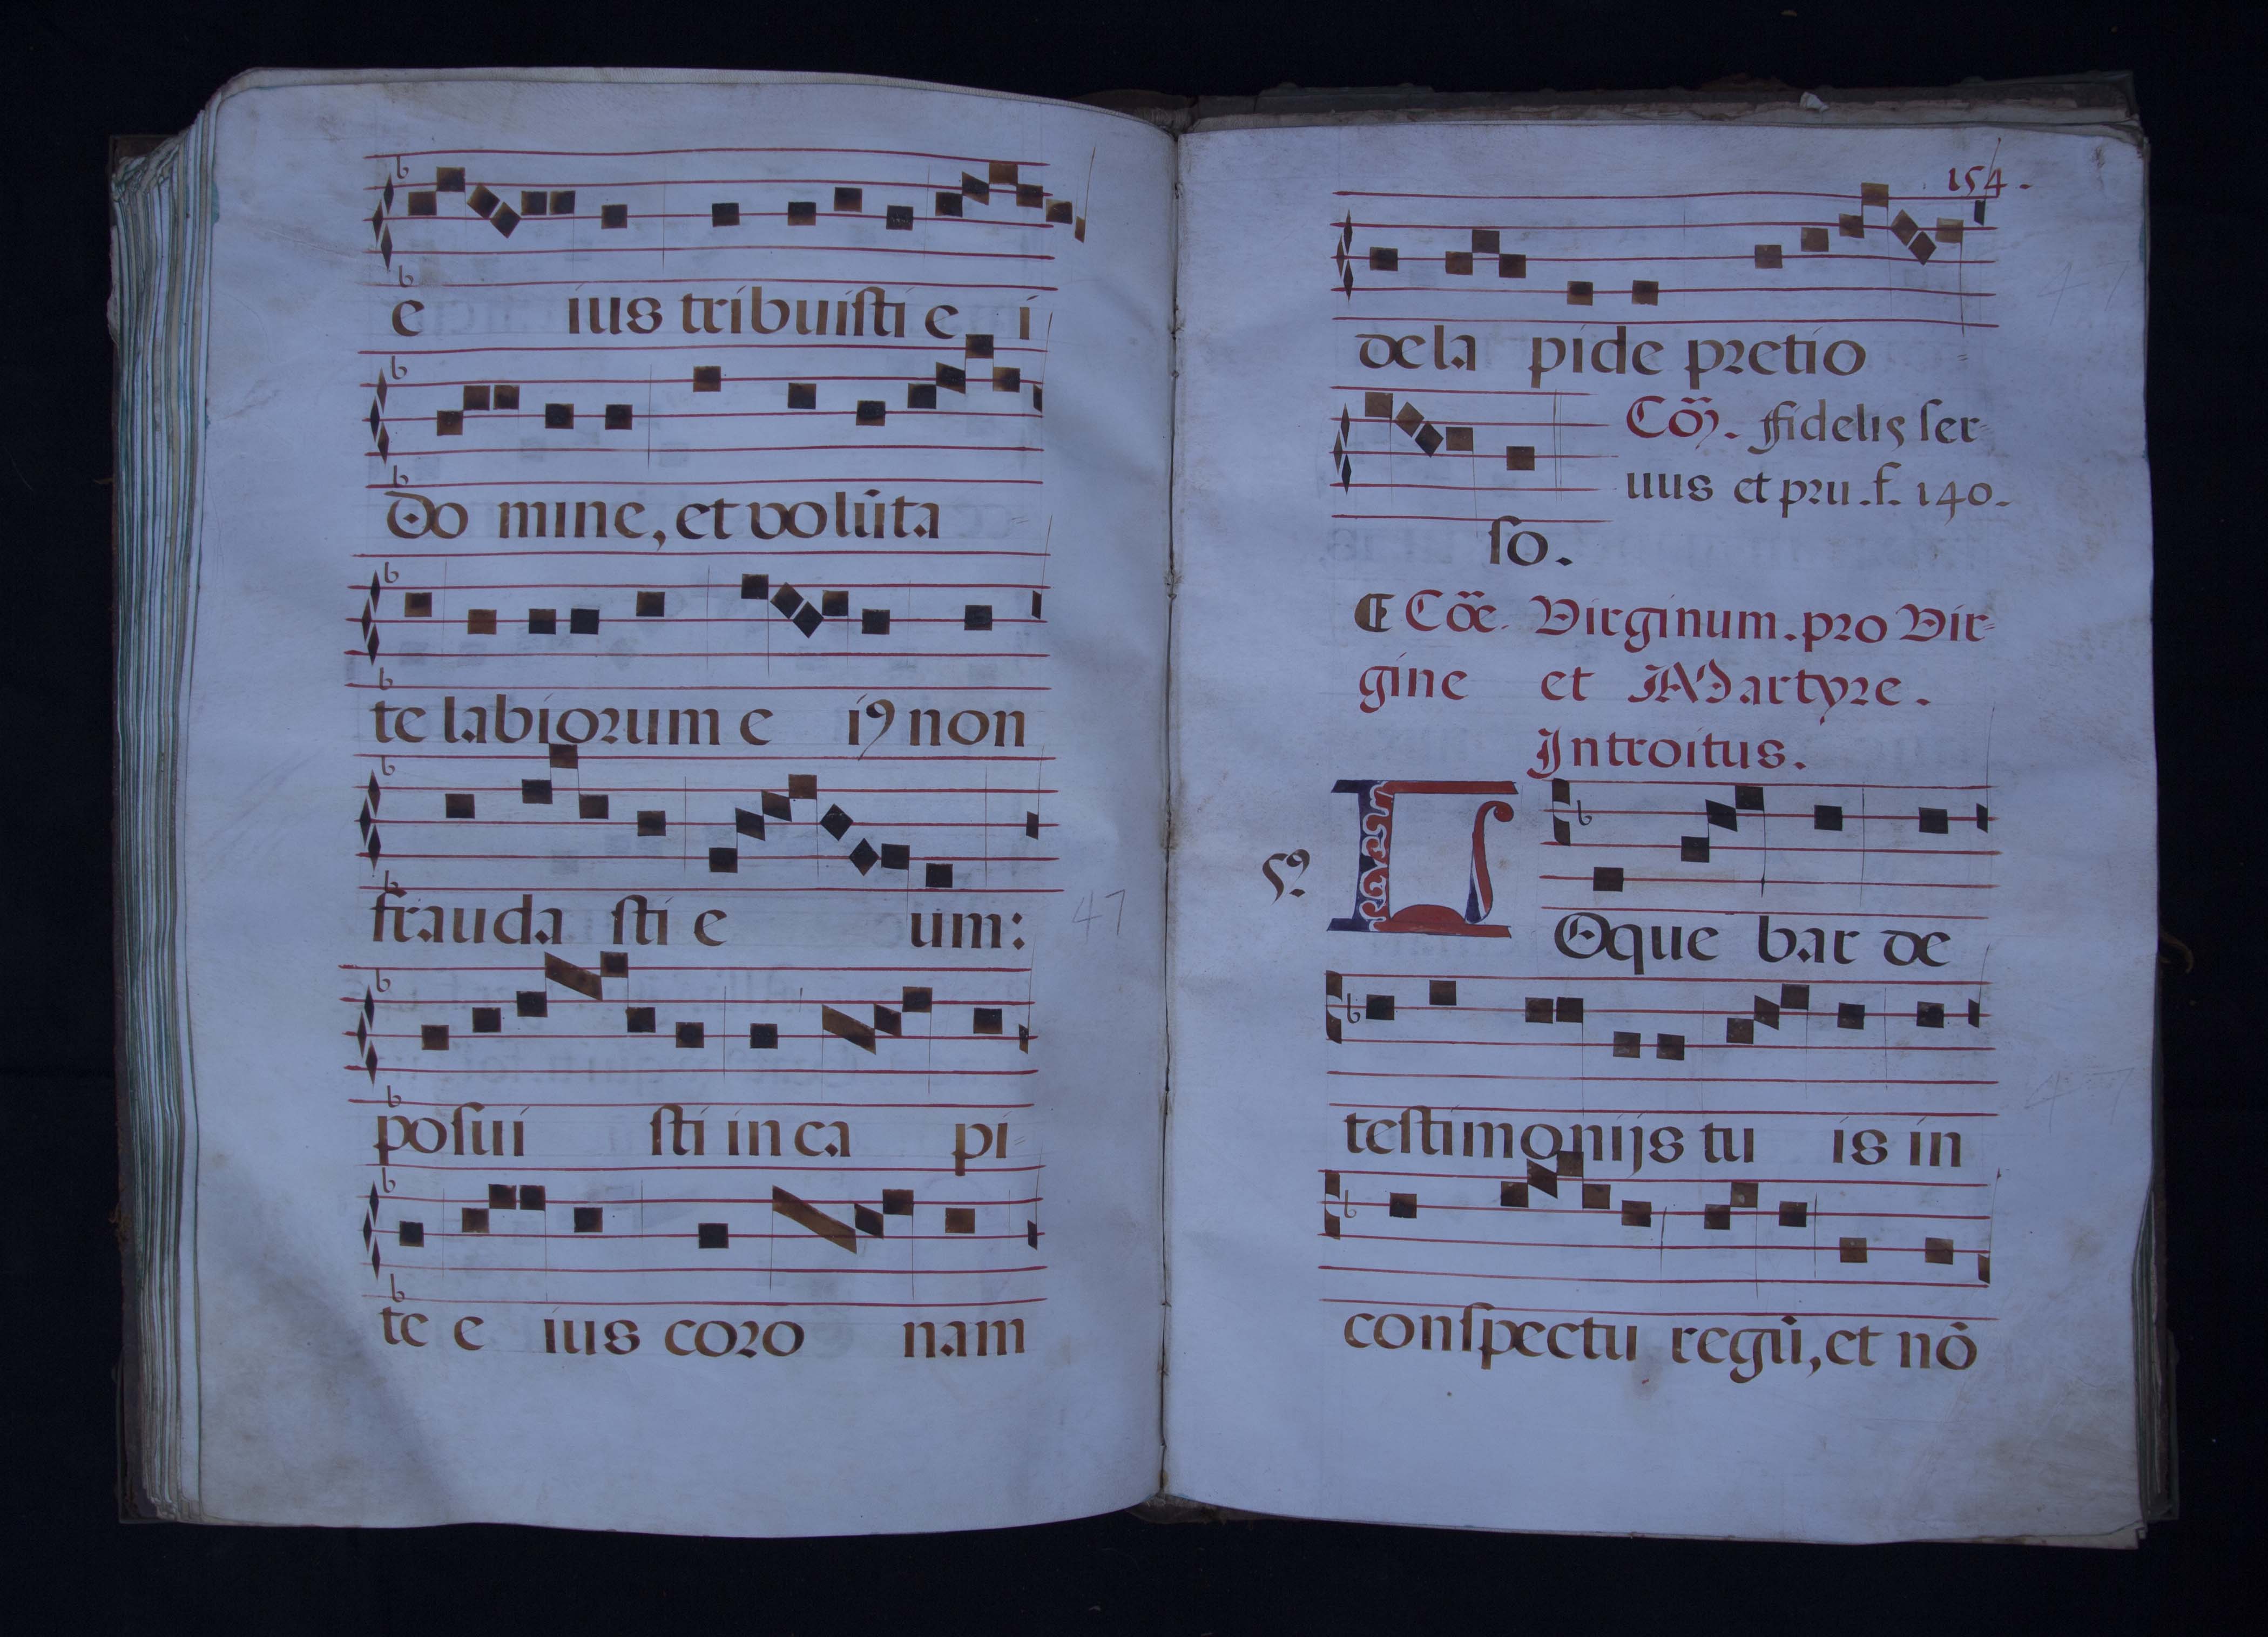 e ius tribuisti e i
Do mine, et volūta
te labiorum e iꝯ non
frauda sti e um:
47
posui sti in ca pi-
te e ius coro nam
154.
de la pide pretio-
Cōꝫ. ffidelis ser-
uus et pru. f. 140.
so.
¶ Cōe. Virginum. pro Vir-
gine et Martyre.
Introitus.
5ꝰ
L Oque bar de
testimonijs tu is in
conspectu regū, et nō